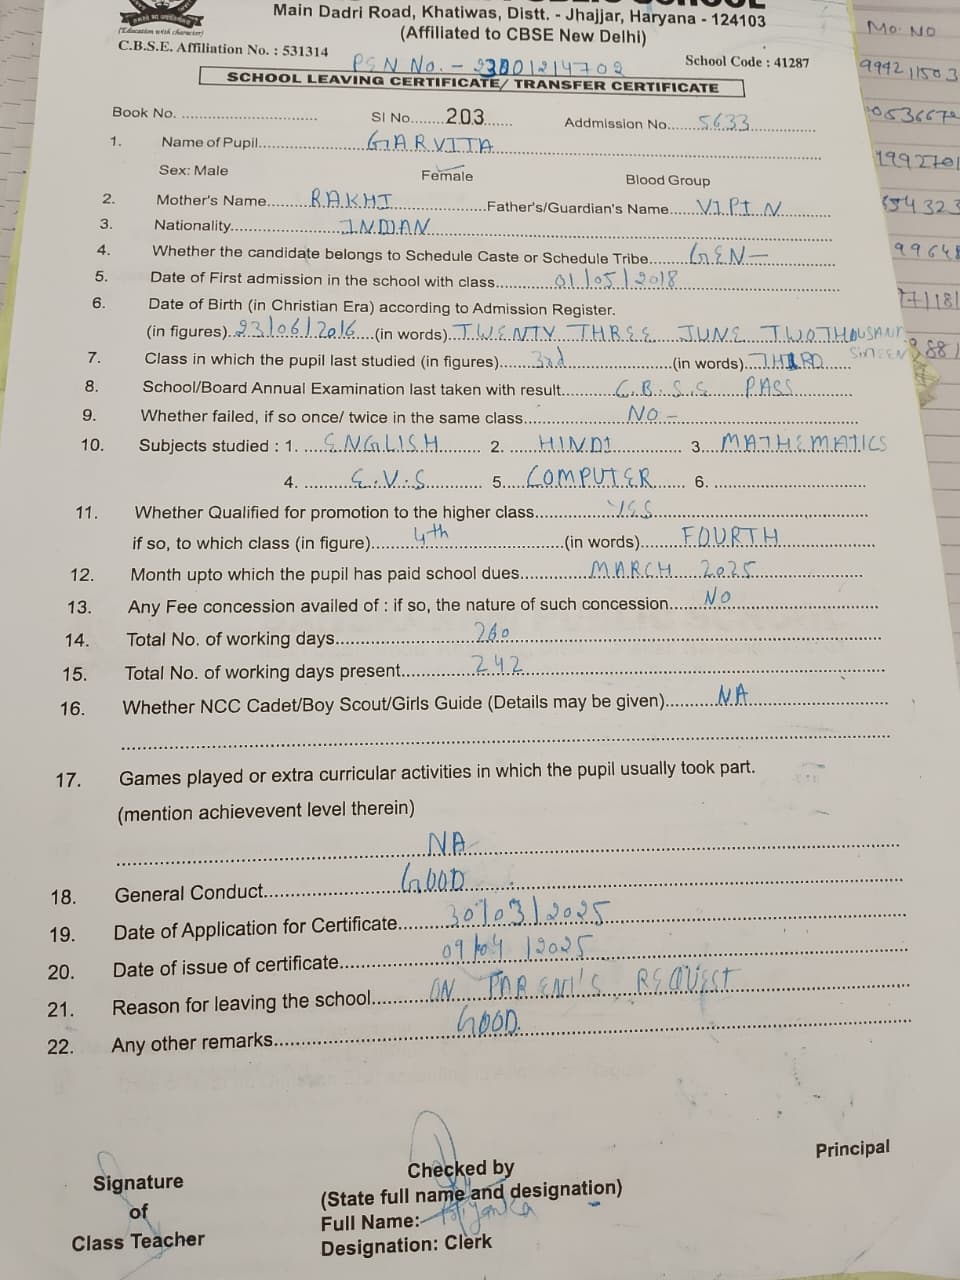 Main Dadri Road, Khatiwas, Distt. - Jhajjar, Haryana - 124103
(Education with character)
(Affiliated to CBSE New Delhi)
C.B.S.E. Affiliation No. : 531314
School Code : 41287
PEN No. - 23001214702
SCHOOL LEAVING CERTIFICATE/ TRANSFER CERTIFICATE
Book No.
Sl No. 203
Addmission No. 5633
1. Name of Pupil GARVITA
Sex: Male Female Blood Group
2. Mother's Name RAKHI Father's/Guardian's Name VIPIN
3. Nationality INDIAN
4. Whether the candidate belongs to Schedule Caste or Schedule Tribe GEN-
5. Date of First admission in the school with class 01/05/2018
6. Date of Birth (in Christian Era) according to Admission Register.
(in figures) 23/06/2016 (in words) TWENTY THREE JUNE TWOTHOUSANT
7. Class in which the pupil last studied (in figures) 3rd (in words) THIRD
8. School/Board Annual Examination last taken with result C.B.S.E PASS
9. Whether failed, if so once/ twice in the same class NO -
10. Subjects studied : 1. ENGLISH 2. HINDI 3. MATHEMATICS
4. E.V.S 5. COMPUTER 6.
11. Whether Qualified for promotion to the higher class YES
if so, to which class (in figure) 4th (in words) FOURTH
12. Month upto which the pupil has paid school dues MARCH 2025
13. Any Fee concession availed of : if so, the nature of such concession NO
14. Total No. of working days 260
15. Total No. of working days present 242
16. Whether NCC Cadet/Boy Scout/Girls Guide (Details may be given) NA
17. Games played or extra curricular activities in which the pupil usually took part.
(mention achievevent level therein)
NA
18. General Conduct GOOD
19. Date of Application for Certificate 30/03/2025
20. Date of issue of certificate 09/04/2025
21. Reason for leaving the school ON PARENT'S REQUEST
22. Any other remarks GOOD
Signature
of
Class Teacher
Checked by
(State full name and designation)
Full Name: Priyanka
Designation: Clerk
Principal
Mo. NO